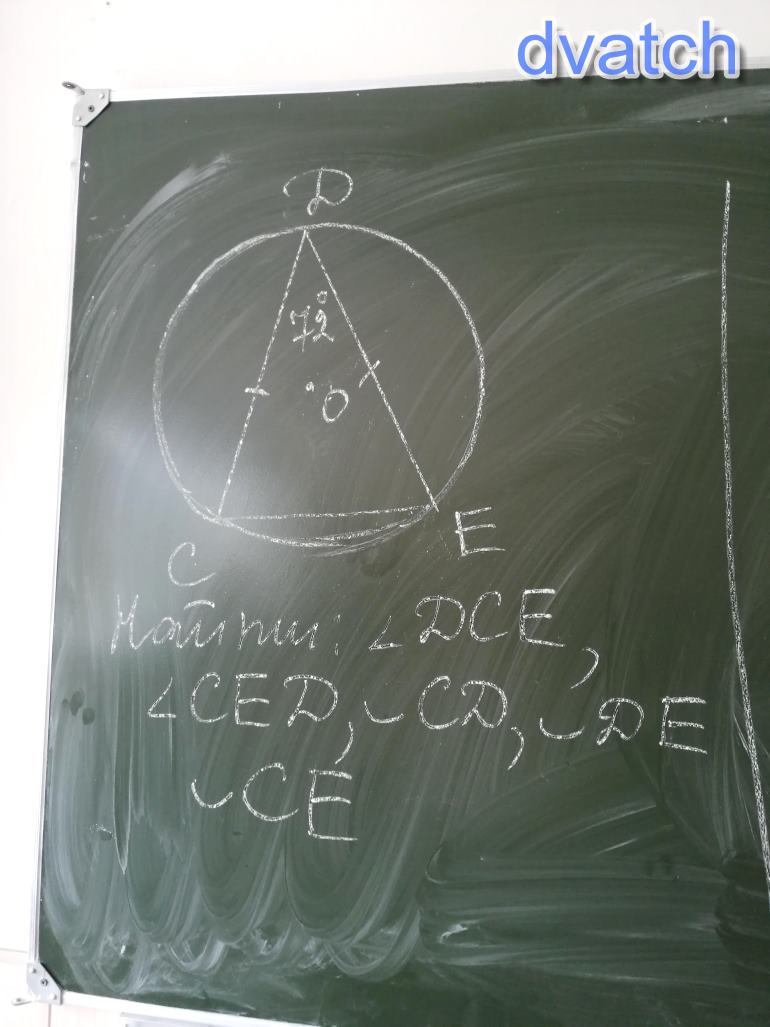 dvatch
D
72°
O
E
C
Найти: ∠DCE,
∠CED, ◡CD, ◡DE
◡CE